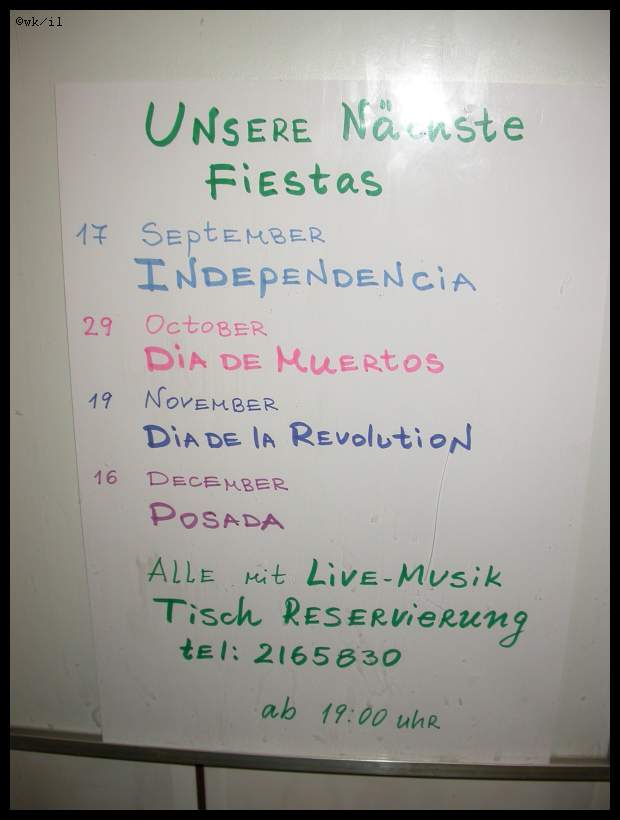 ©wk/il
UNSERE Nächste
Fiestas
17 SEptEMBER
INDEpENDENCiA
29 OctoBER
DiA DE MUERtOS
19 NOVEMBER
DiA DE lA REvolutioN
16 DECEMBER
POSADA
ALLE mit LivE-MUSiK
TiSch RESERViERUNg
tEl: 2165830
ab 19:00 uhR